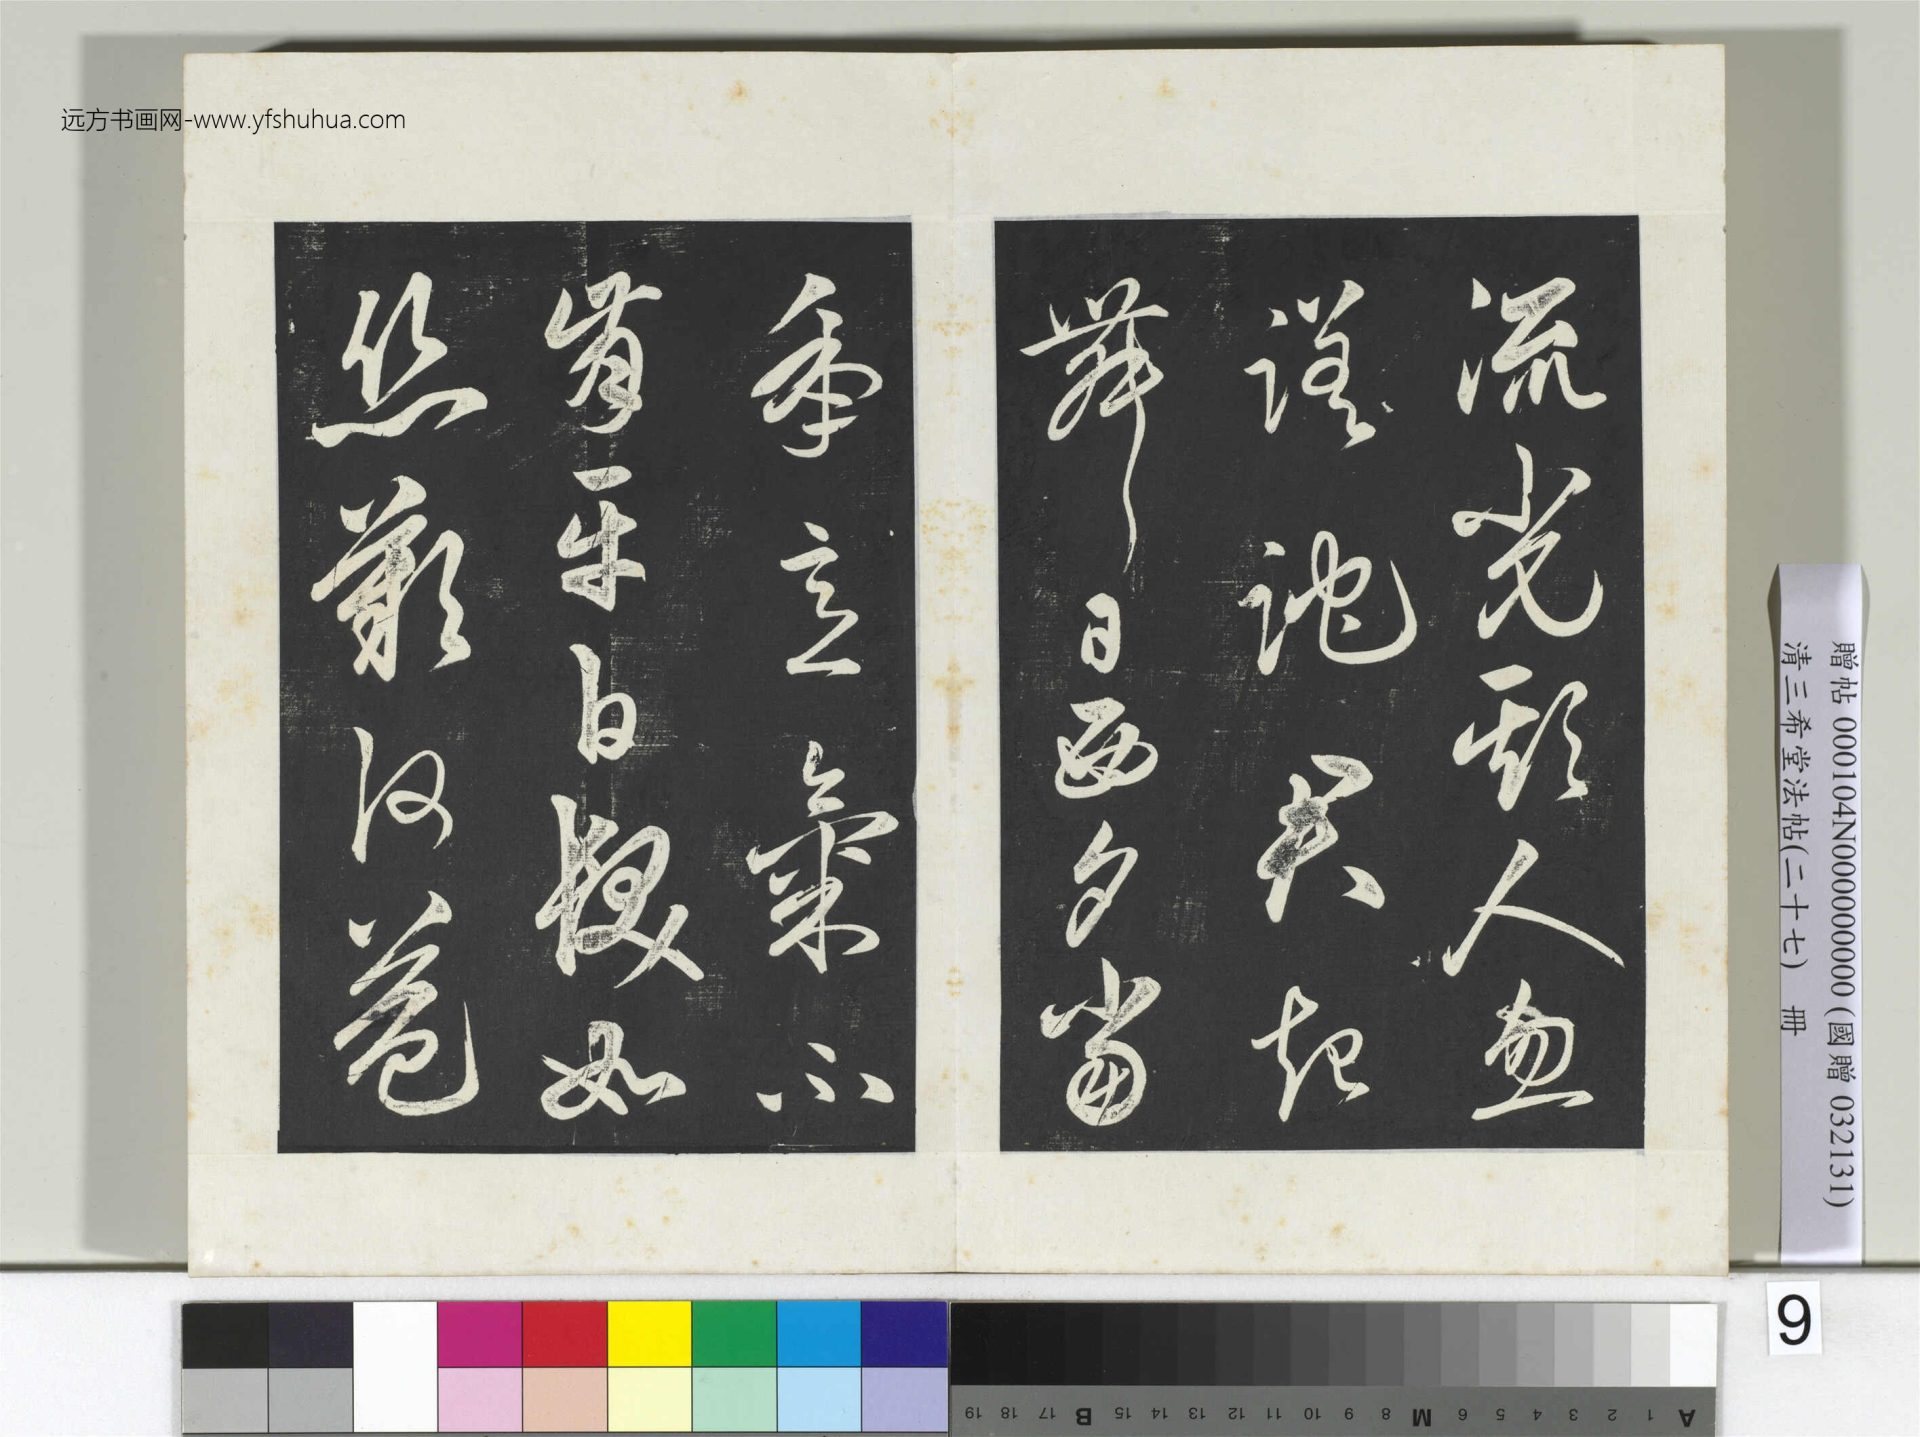 远方书画网-www.yfshuhua.com
流光欺人忽
蹉跎君起
舞日西夕當
年意氣不
肯平白髮如
絲歎何益
贈帖 000104N000000000 (國贈 032131)
清三希堂法帖(二十七) 冊
9
A 1 2 3 4 5 6 M 8 9 10 11 12 13 14 15 B 17 18 19